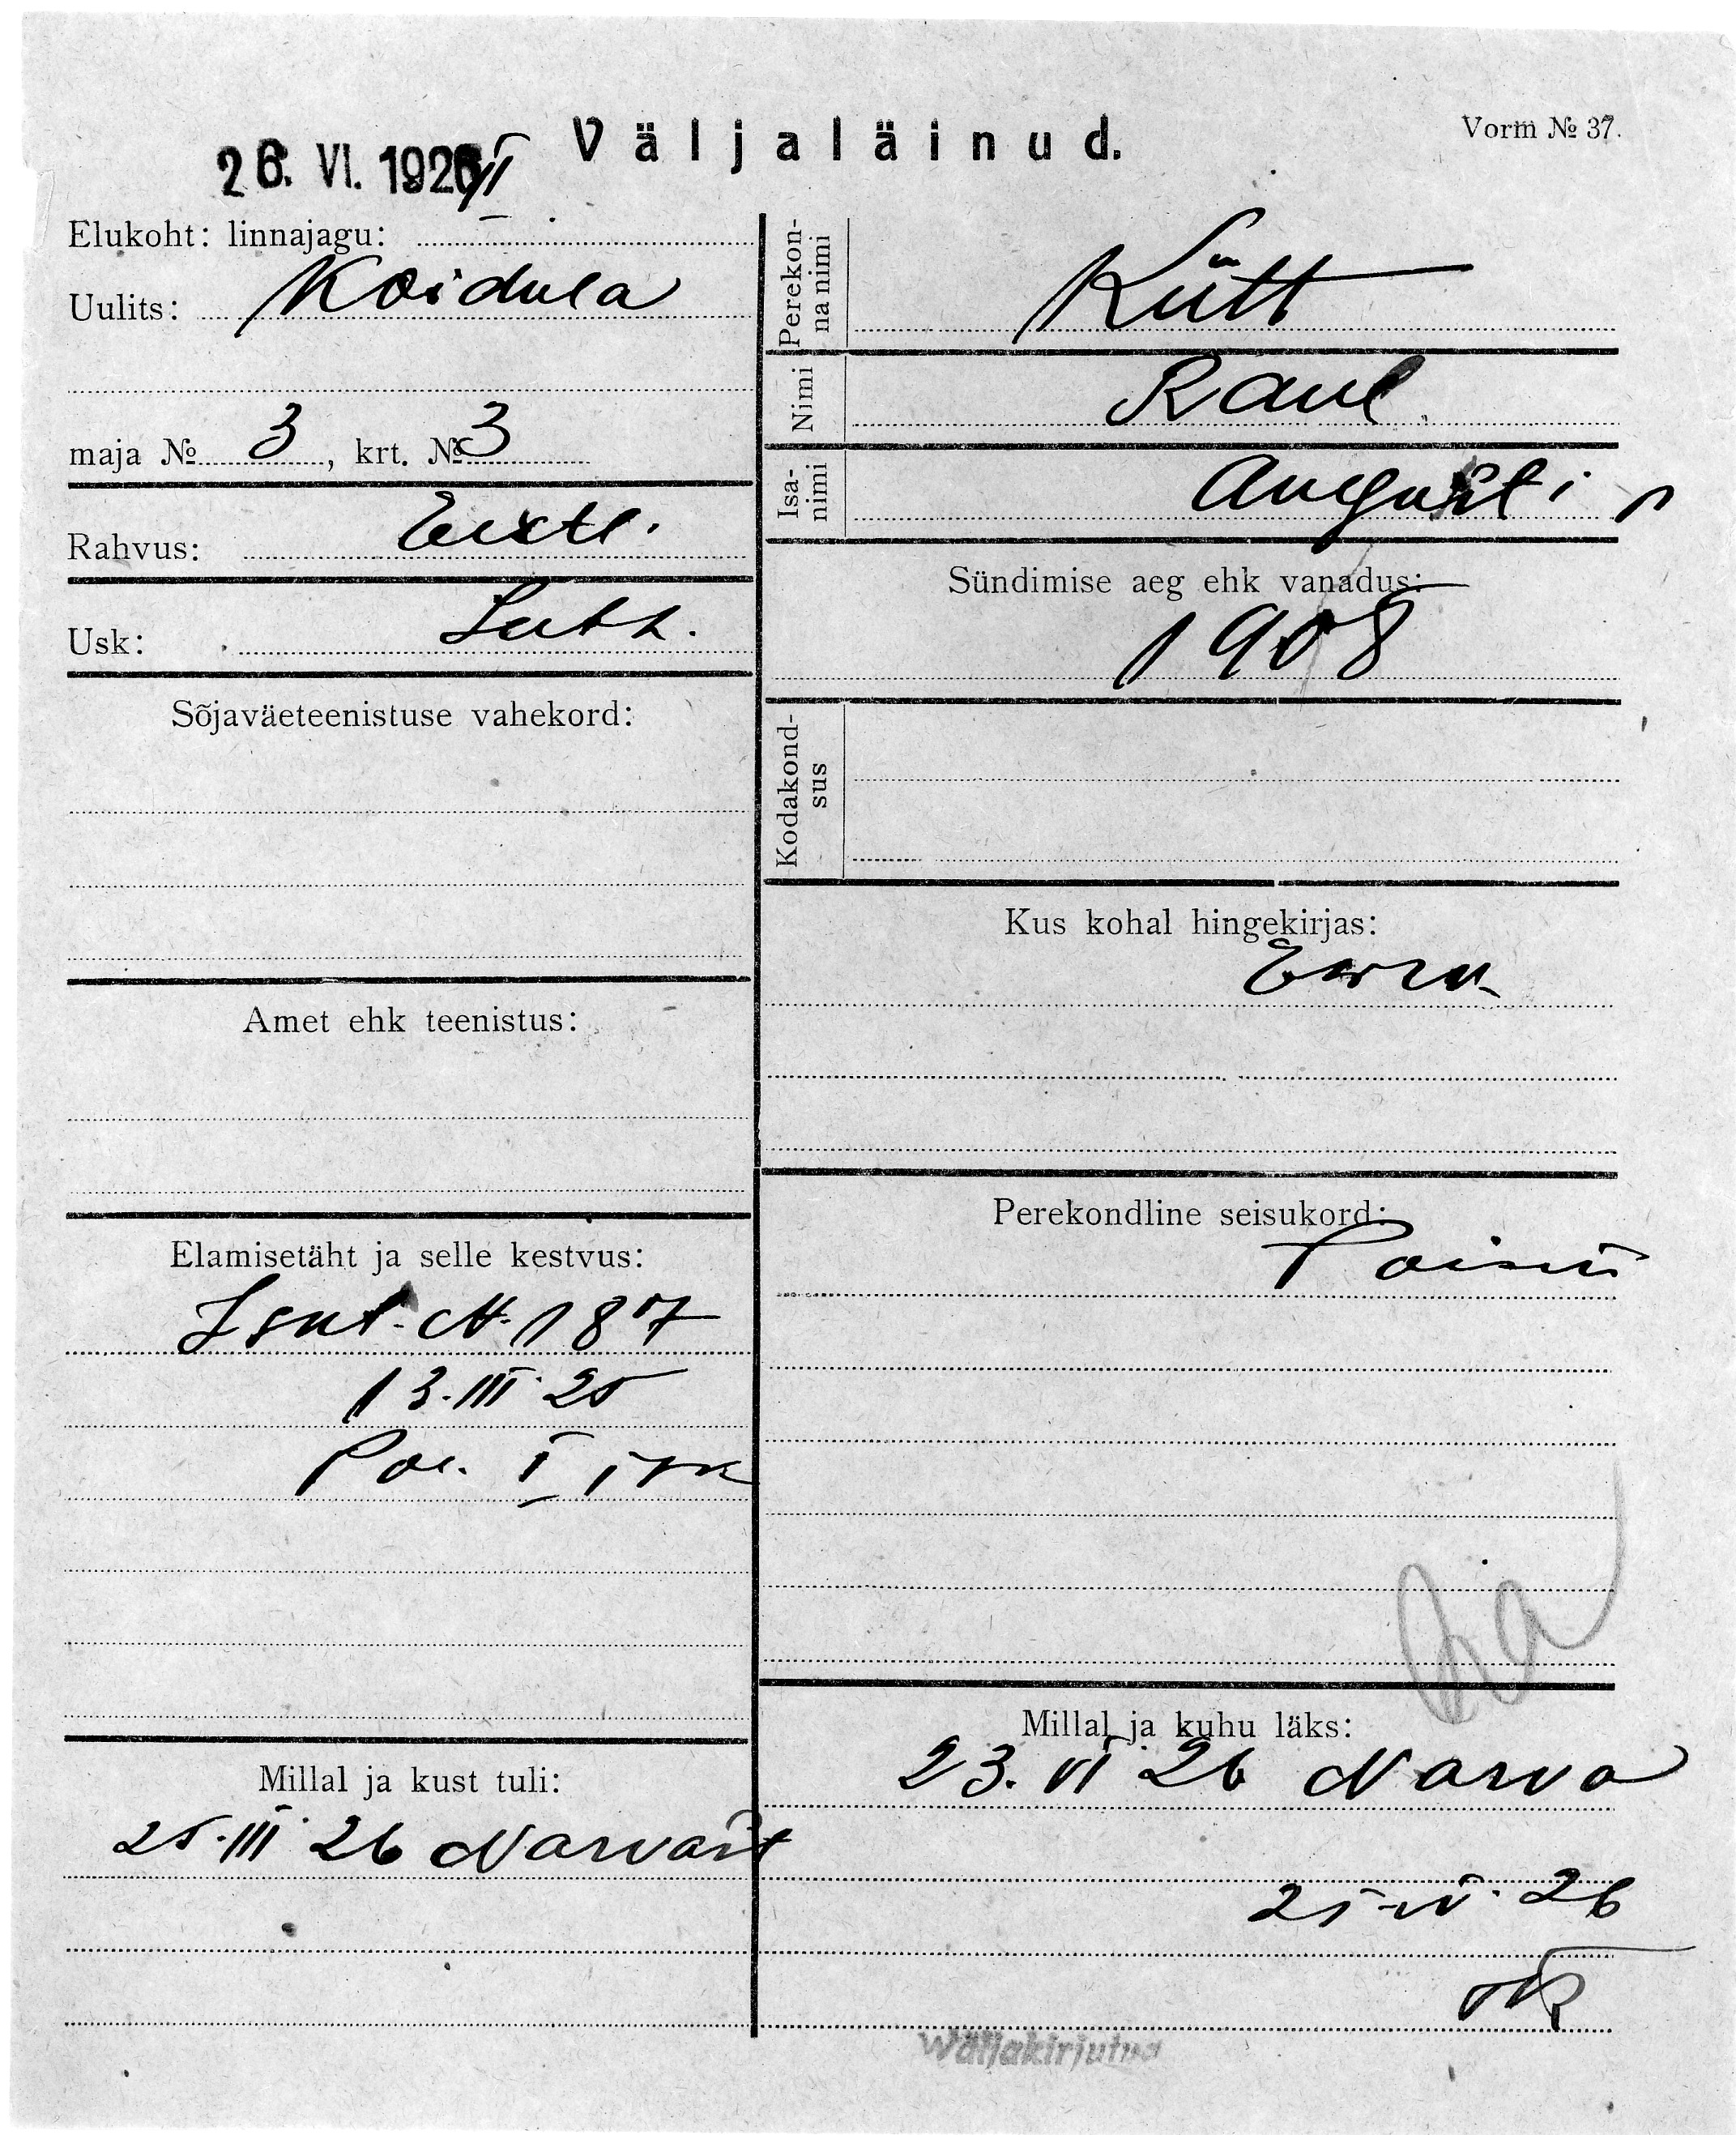 Väljaläinud.
Vorm № 37.
26. VI. 1926
Elukoht: linnajagu: II
Uulits: Koidula
maja № 3, krt. № 3
Rahvus: Eestl.
Usk: Luth.
Sõjaväeteenistuse vahekord:
Amet ehk teenistus:
Elamisetäht ja selle kestvus:
Isut. N. 187
13.III 25
Pol. I
Millal ja kust tuli:
25.III 26 Narvast
Perekon-
na nimi
Kütt
Nimi
Raul
Isa-
nimi
Augusti p
Sündimise aeg ehk vanadus:
1908
Kodakond-
sus
Kus kohal hingekirjas:
Perekondline seisukord:
Millal ja kuhu läks:
23. VI 26 Narva
Wäljakirjutud